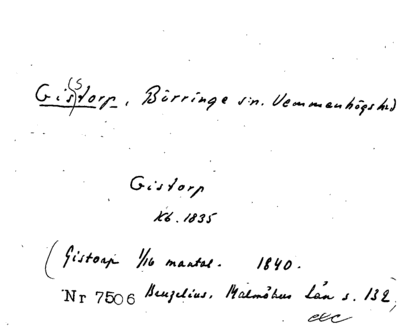 Gis(s)torp, Börringe sn. Vemmenhögs hd
Gistorp
Kb. 1835
(Gistorp 1/16 mantal. 1840.
Nr 7506 Benzelius. Malmöhus Län s. 132,